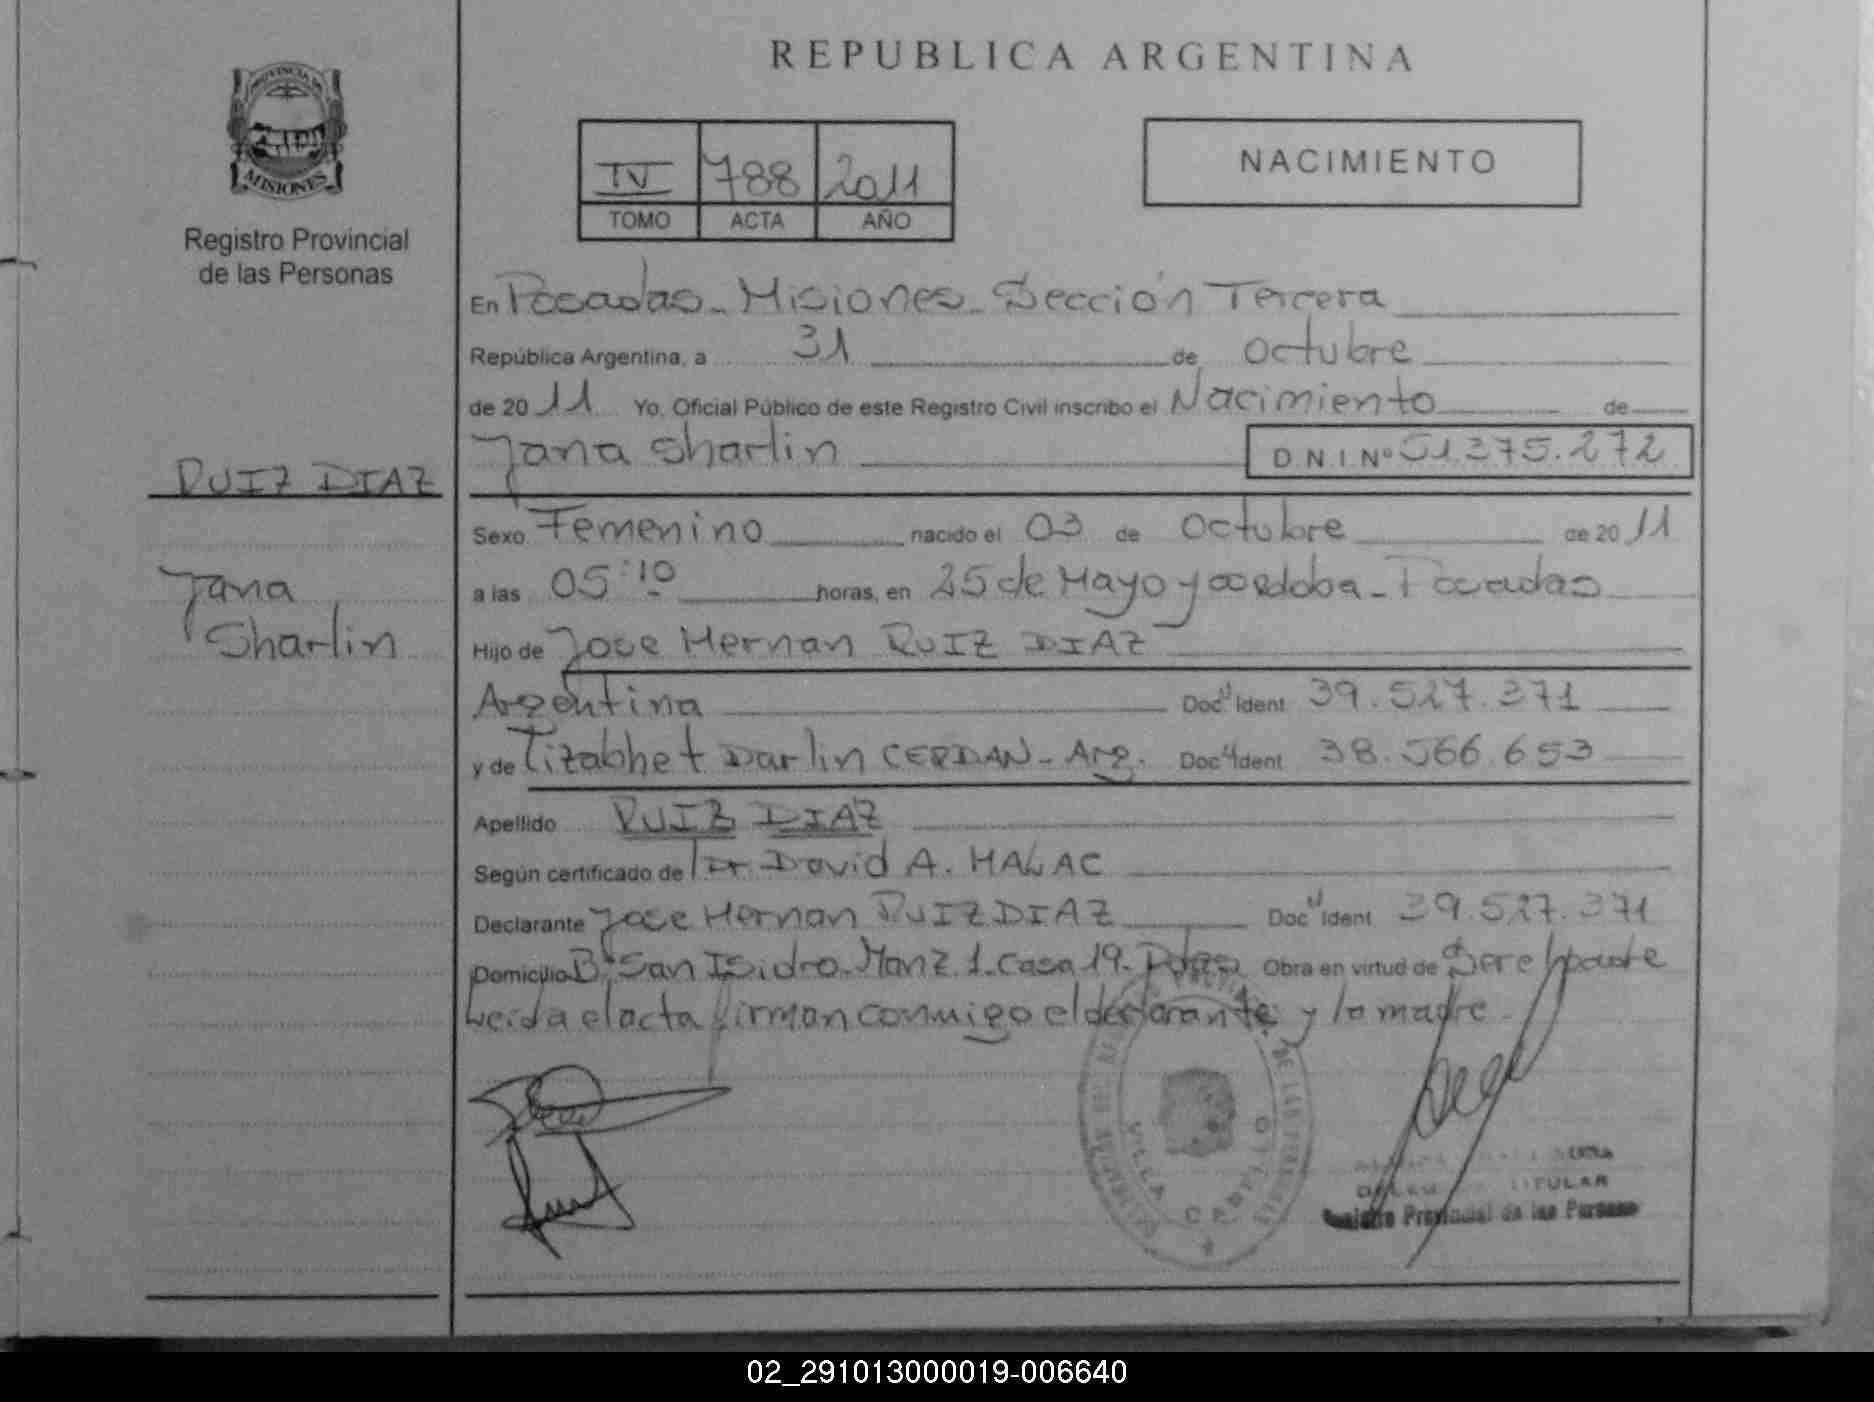 REPUBLICA ARGENTINA
PROVINCIA DE
MISIONES
Registro Provincial
de las Personas
IV 788 2011
TOMO ACTA AÑO
NACIMIENTO
En Posadas - Misiones - Sección Tercera
República Argentina, a 31 de octubre
de 2011 Yo, Oficial Público de este Registro Civil inscribo el Nacimiento de
Jana Sharlin D.N.I.Nº 51.375.272
RUIZ DIAZ
Jana
Sharlin
Sexo Femenino nacido el 03 de octubre de 2011
a las 05:10 horas, en 25 de Mayo y cordoba - Posadas
Hijo de Jose Hernan RUIZ DIAZ
Argentina Doc. Ident 39.527.371
y de Lizabhet Darlin CERDAN - Arg. Doc. Ident 38.566.653
Apellido RUIZ DIAZ
Según certificado de Dr. David A. HALAC
Declarante Jose Hernan RUIZ DIAZ Doc. Ident 39.527.371
Domicilio Bº San Isidro - Manz 1 - Casa 19 - Pdas Obra en virtud de
Leida el acta firman conmigo el declarante y la madre
VILLA CABELLO
TITULAR
Registro Provincial de las Personas
02_291013000019-006640